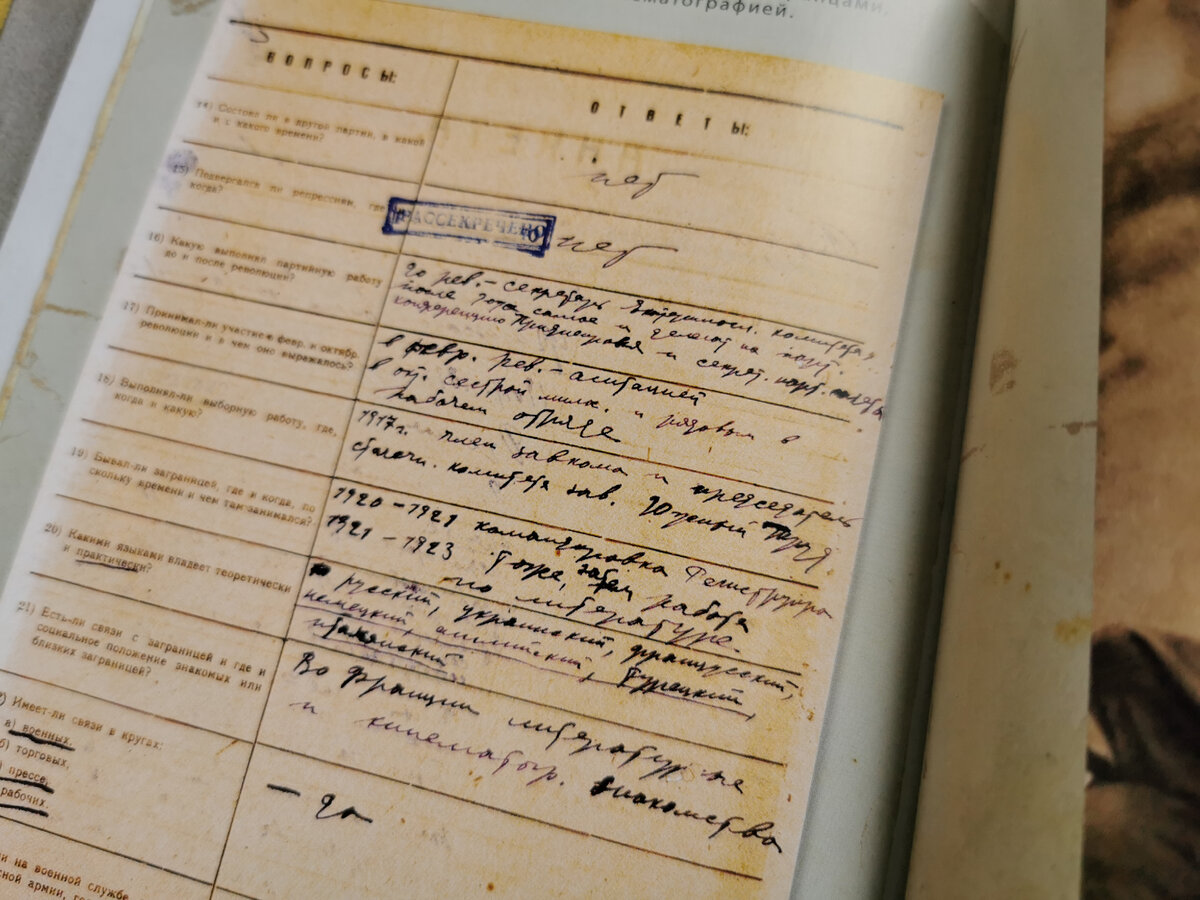 нцами,
матографией.
ВОПРОСЫ:
ОТВЕТЫ:
14) Состоял ли в другой партии, в какой
и с какого времени?
нет
15) Подвергался ли репрессиям, где,
когда?
РАССЕКРЕЧЕНО
нет
16) Какую выполнял партийную работу
до и после революции?
до рев. – секретарь комитета
после того самое и делегат на парт.
конференцию Приднепровья и секрет. парт.
17) Принимал-ли участие в февр. и октябр.
революции и в чем оно выражалось?
в февр. рев. – агитацией
в окт. сестрой милос. и рядовым в
рабочем отряде
18) Выполнял-ли выборную работу, где,
когда и какую?
1917г. член завкома и председатель
комитета зав. Южный
19) Бывал-ли заграницей, где и когда, по
скольку времени и чем там занимался?
1920 – 1921 командировка Региструпра
1921 – 1923 Тоже, затем работа
по литературе.
20) Какими языками владеет теоретически
и практически?
русский, украинский, французский,
немецкий, английский, турецкий,
итальянский
21) Есть-ли связи с заграницей и где и
социальное положение знакомых или
близких заграницей?
Во Франции литературные
и кинематогр. знакомства
Имеет-ли связи в кругах:
а) военных,
б) торговых,
прессе,
рабочих.
– да
на военной службе
армии,